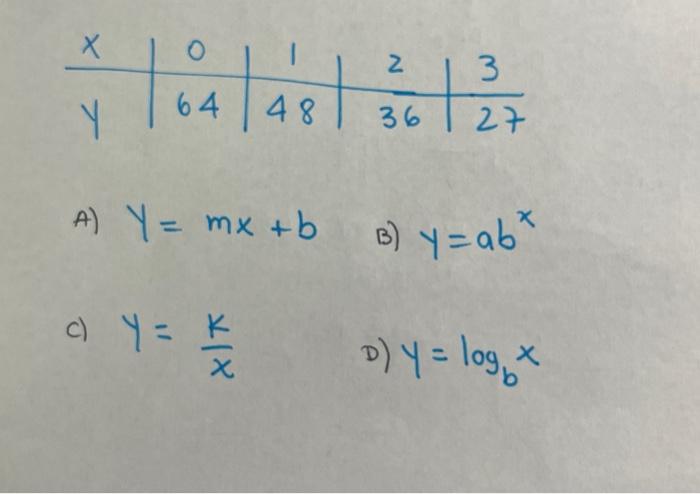 x | 0 | 1 | 2 | 3
Y | 64 | 48 | 36 | 27
A) Y = mx + b B) y = abˣ
C) Y = K/x D) y = log_b x